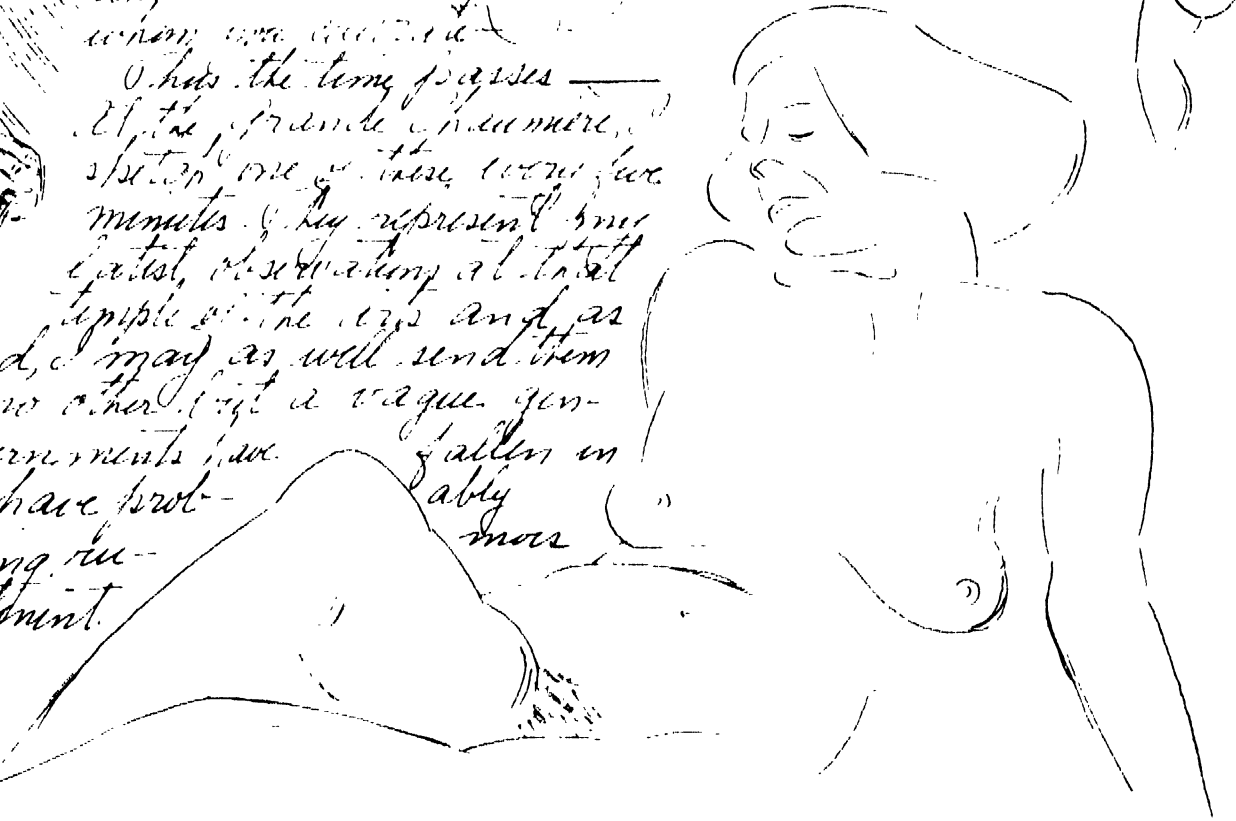 whom
Thus the time passes —
At the Grande Chaumiere, I
sketch one of these every five
minutes. They represent my
latest observations at that
temple of the arts and as
d, I may as well send them
no other but a vague gen-
ernments have fallen in
have prob- ably
ng ru- mors
tment.